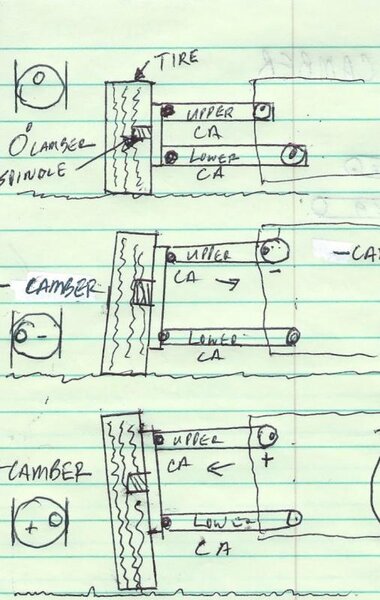 TIRE
UPPER
CA
O° CAMBER
SPINDLE
LOWER
CA
UPPER
- CA
CA →
-
- CAMBER
-
LOWER
CA
UPPER
CA ←
+
-CAMBER
+
LOWER
CA